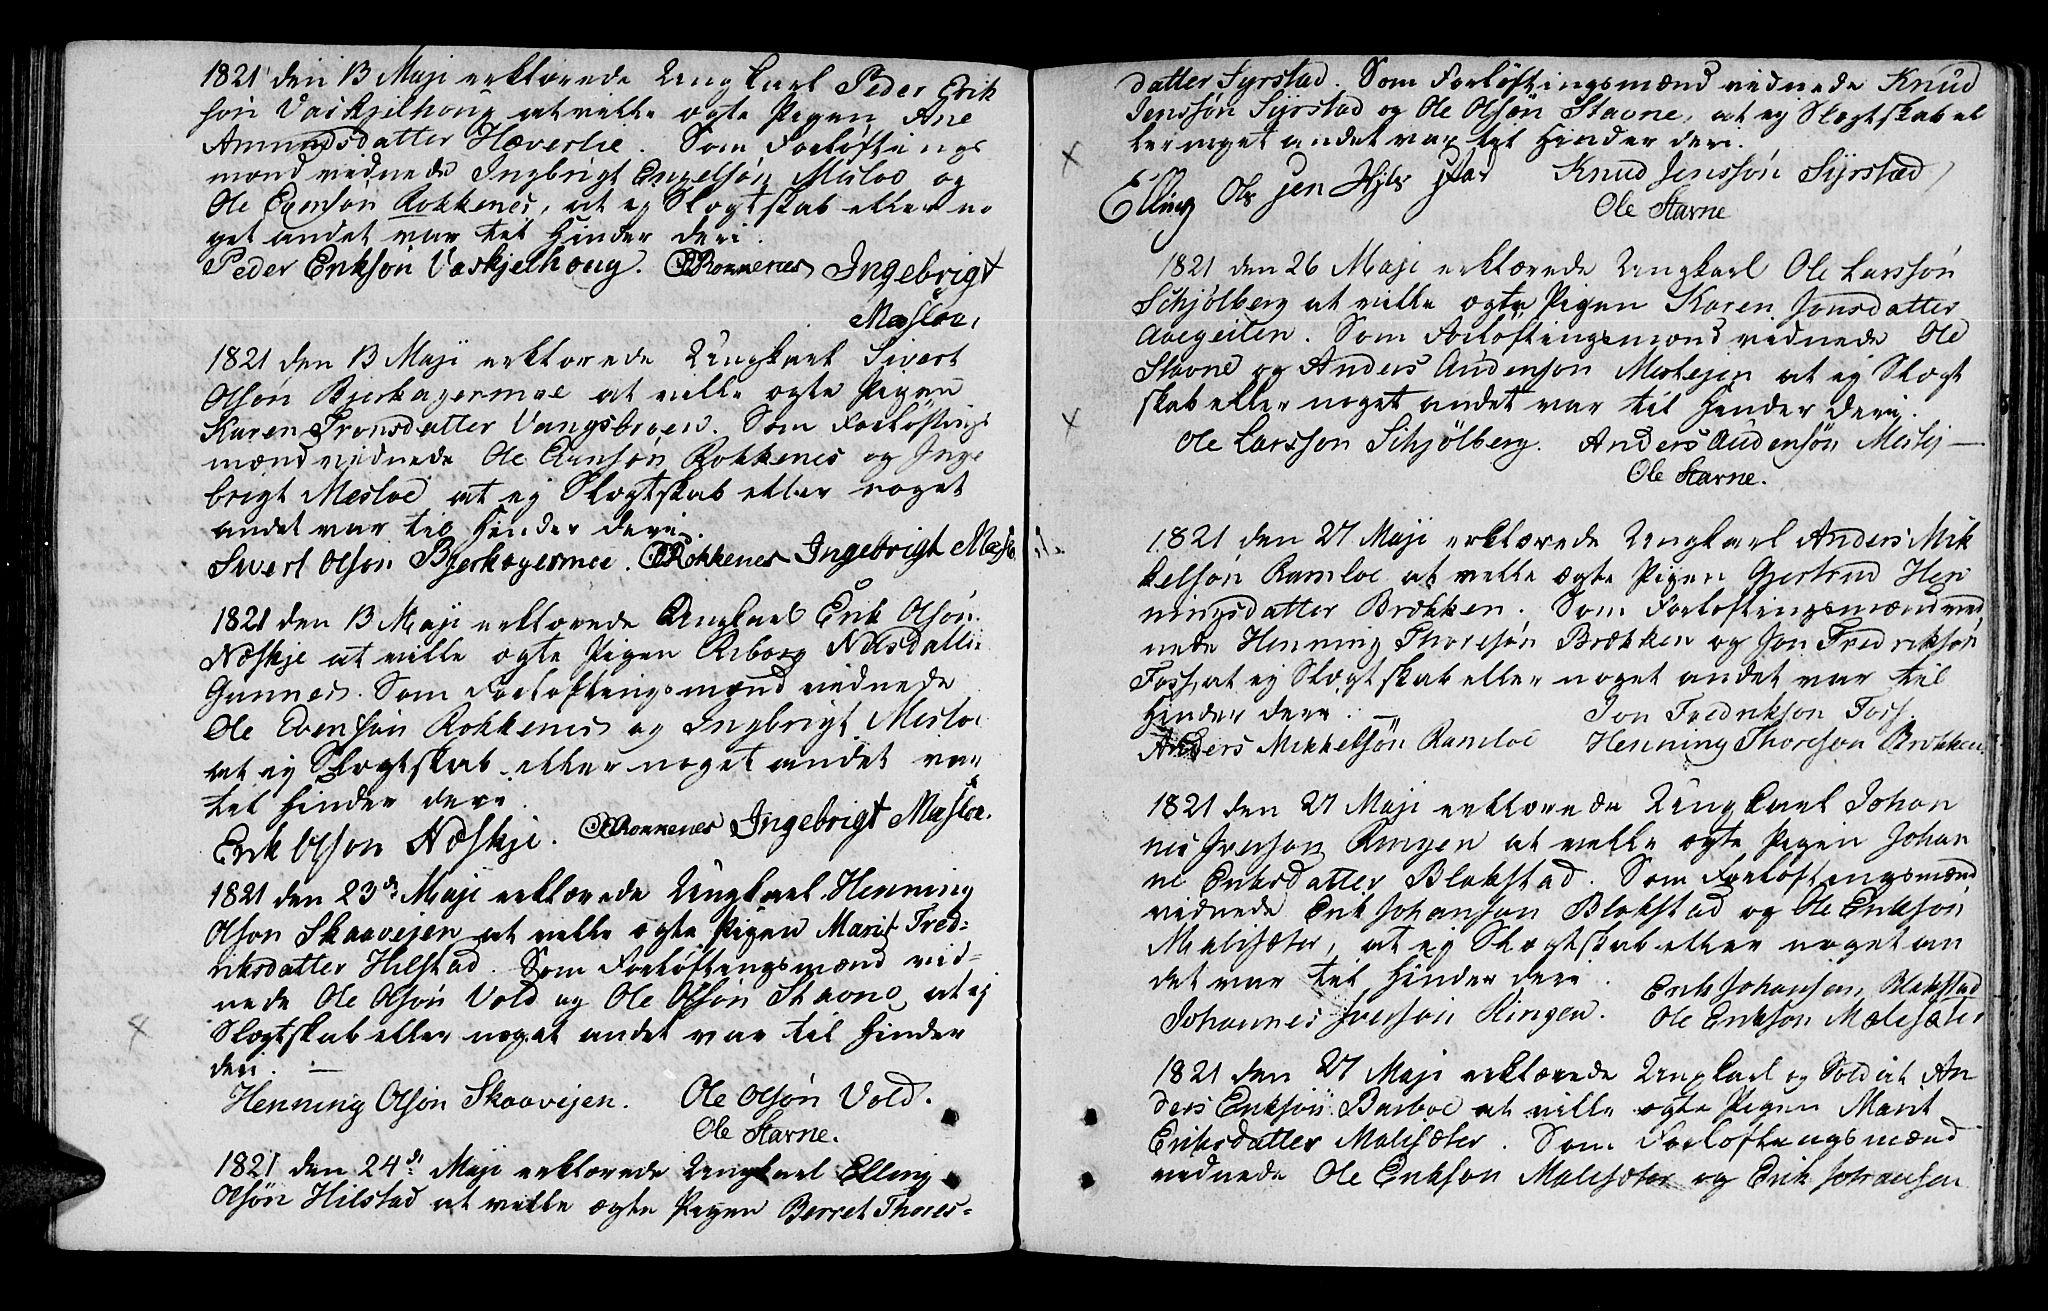 1821 den 13 Maji erklærede Ungkarl Peder Erik
søn Vaskjelhoug at ville ægte Pigen Ane
Amundsdatter Hæverlie. Som Forløftnings
mænd vidnede Ingbrigt Engelsøn Mæsloe og
Ole Evensøn Rokkenes, at ej Slægtskab eller no
get andet var til Hinder deri.
Peder Erikson Vaskjelhoug. Rokkenes Ingebrigt
Mæsloe,
1821 den 13 Maji erklærede Ungkarl Sivert
Olsøn Bjerkagermoe at ville ægte Pigen
Karen Tronsdatter Vangsbroen. Som Forløftnings
mænd vidnede Ole Evensøn Rokkenes og Inge
brigt Mesloe at ej Slægtskab eller noget
andet var til Hinder deri.
Sivert Olson Bjerkagermoe. Rokkenes Ingebrigt Mæsloe
1821 den 13 Maji erklærede Ungkarl Erik Olsøn
Næskje at ville ægte Pigen Riborg Nilsdatter
Gunnes. Som Forløftningsmænd vidnede
Ole Evensøn Rokkenes og Ingbrigt Mesloe
at ej Slægtskab eller noget andet var
til Hinder deri.
Erik Olson Næskje. Rokkenes Ingebrigt Mæsloe.
1821 den 23d Maji erklærede Ungkarl Henning
Olson Skaavejen at ville ægte Pigen Marit Fred-
riksdatter Hilstad. Som Forløftningsmænd vid-
nede Ole Olsøn Vold og Ole Olsøn Stavne, at ej
Slægtskab eller noget andet var til Hinder
deri. —
Henning Olsøn Skaavejen. Ole Olsøn Vold.
Ole Stavne.
1821 den 24d Maji erklærede Ungkarl Elling
Olsøn Hilstad at ville ægte Pigen Berret Thores-
datter Syrstad. Som Forløftningsmænd vidnede Knud
Jenssøn Syrstad og Ole Olsøn Stavne, at ej Slægtskab el
ler noget andet var til Hinder deri.
Elling Ols sen Hjls stad Knud Jenssøn Syrstad
Ole Stavne
1821 den 26 Maji erklærede Ungkarl Ole Larssøn
Schjølberg at ville ægte Pigen Karen Jonsdatter
Aaegeiten. Som Forløftningsmænd vidnede Ole
Stavne og Anders Audenson Merkejen at ej Slægt
skab eller noget andet var til Hinder deri.
Ole Larsson Schjølberg. Anders Audensøn
Ole Stavne.
1821 den 27 Maji erklærede Ungkarl Anders Mik
kelsøn Ramloe at ville ægte Pigen Gjertrud Hen
ningsdatter Brækken. Som Forløftningsmænd vid
nede Henning Thoresøn Brækken og Jon Fredrikson
Foss, at ej Slægtskab eller noget andet var til
Hinder deri. — Jon Fredrikson Foss
Anders Mikkelsøn Ramloe Henning Thoreson Brækken
1821 den 27 Maji erklærede Ungkarl Johan
nes Iverson Ringen at ville ægte Pigen Johan
ne Eriksdatter Blokstad. Som Forløftningsmænd
vidnede Erik Johanson Blokstad og Ole Erikson
Malisæter, at ej Slægtskab eller noget an
det var til Hinder deri. Erik Johansen Blokstad
Johannes Iverson Ringen. Ole Erikson Malisæter
1821 den 27 Maji erklærede Ungkarl og Soldat An
ders Eriksøn Barboe at ville ægte Pigen Marit
Eriksdatter Malisæter. Som Forløftningsmænd
vidnede Ole Erikson Malisæter og Erik Johansen